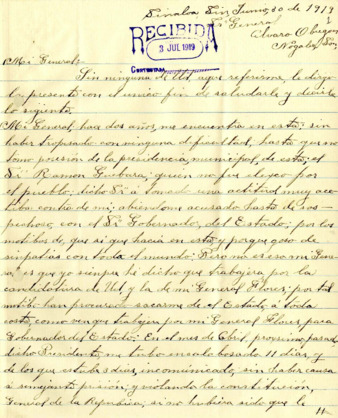 Sinaloa Sin, Junio, 30 de 1919
Sr General
Alvaro Obregon
Nogales, Son,
RECIBIDA
3 JUL 1919
Mi General:
Sin ninguna de Ud, a que referirme, le dirijo
la presente con el unico fin de saludarle y decirle
lo sigiente.
Mi General, hace dos años, me encuentro en esta; sin
haber tropesado con ninguna dificultad, hasta que no
tomo posesion de la presidencia, municipal, de esta; el
Sr Ramon Guebara; quien no fue eleyco por
el pueblo; dicho Sr a tomado una actitud muy ac-
tiba contra de mi; abiendome acusado hasta de sos-
pechoso, con el Sr Gobernador, del Estado; por los
motibos de, que si que hacia en esta y porque goso de
simpatias con toda el mundo: Pero no es eso mi Gene-
ral es que yo siempre he dicho que trabajera por la
candidatura de Ud y la de mi General Flores; por tal
motibo han procurado sacarme de el Estado, a toda
costa, como ven que trabajo por mi General Flores para
Gobernador del Estado: En el mes de Abril, proximo, pasado,
dicho Presidente, me tubo encalabosado 11 dias, y
de los que estube 3 dias, incomunicado, sin haber causa
a semejante prision; y violando la constitusion,
General de la Republica; si no hubiera sido que le
11